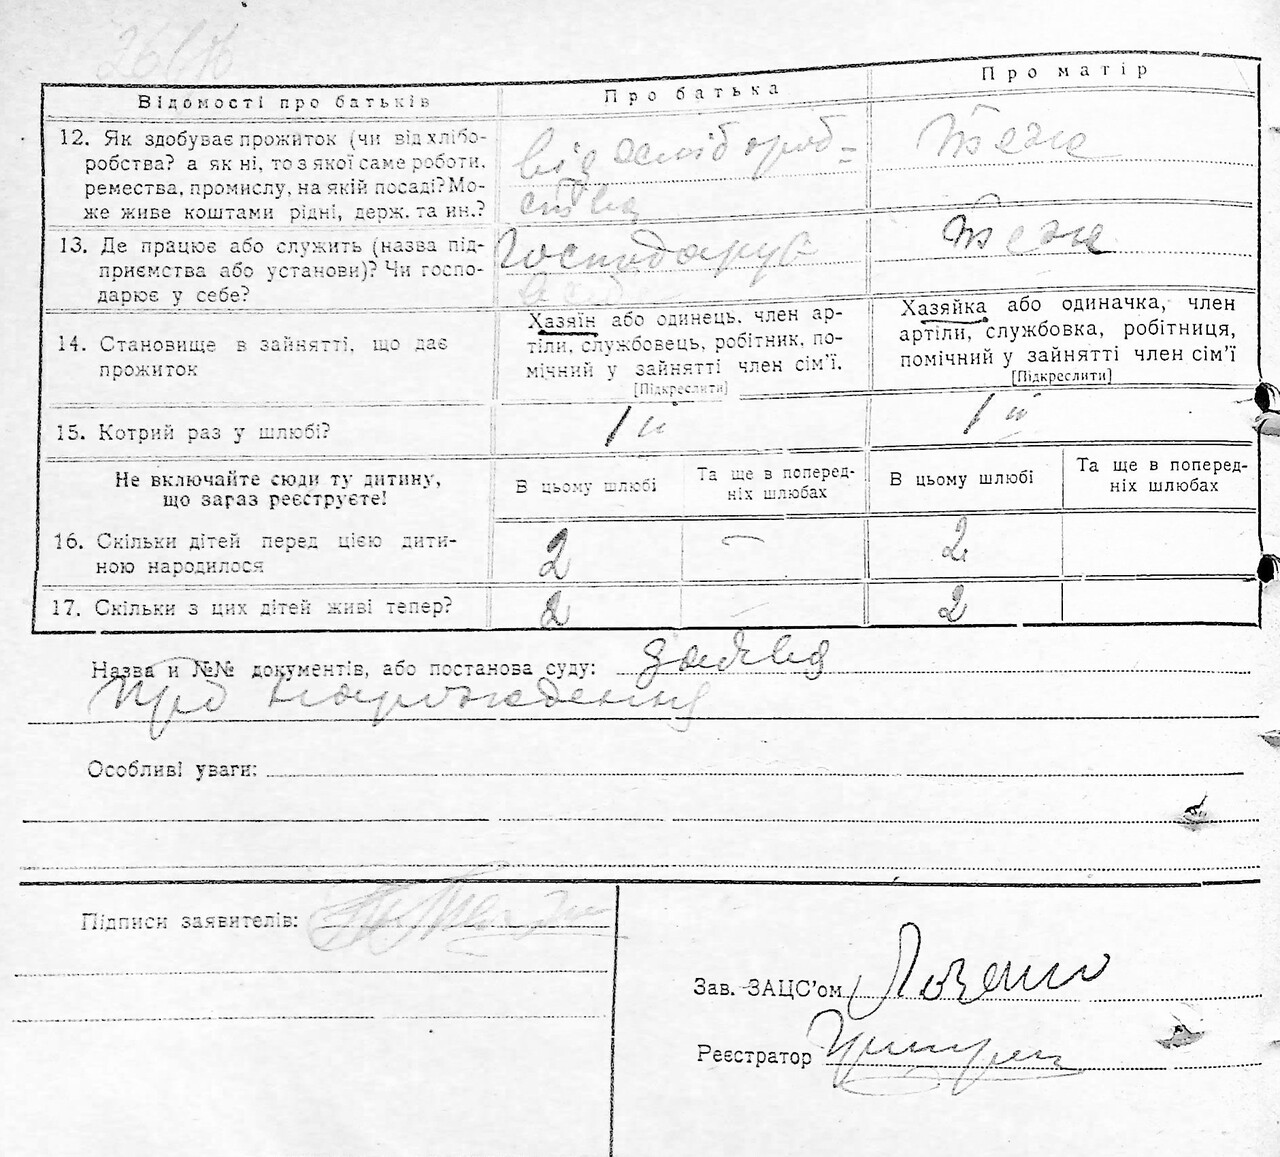 Відомості про батьків
Про батька
Про матір
12. Як здобуває прожиток (чи від хлібо-
робства? а як ні, то з якої саме роботи,
ремества, промислу, на якій посаді? Мо-
же живе коштами рідні, держ. та ин.?
від хлібороб=
ства
Теж
13. Де працює або служить (назва під-
приємства або установи)? Чи госпо-
дарює у себе?
Господарує
Теж
14. Становище в зайнятті, що дає
прожиток
Хазяїн або одинець, член ар-
тіли, службовець, робітник, по-
мічний у зайнятті член сім'ї.
[Підкреслити]
Хазяйка або одиначка, член
артіли, службовка, робітниця,
помічний у зайнятті член сім'ї
[Підкреслити]
15. Котрий раз у шлюбі?
1й
1й
Не включайте сюди ту дитину,
що зараз реєструєте!
В цьому шлюбі
Та ще в поперед-
ніх шлюбах
В цьому шлюбі
Та ще в поперед-
ніх шлюбах
16. Скільки дітей перед цією дити-
ною народилося
2
—
2
17. Скільки з цих дітей живі тепер?
2
2
Назва и №№ документів, або постанова суду: заява
про народження
Особливі уваги:
Підписи заявителів:
Зав. ЗАЦС'ом
Реєстратор